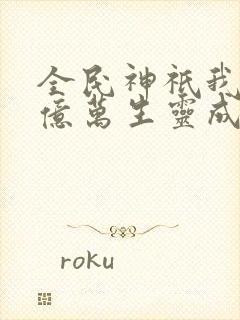 全民神祇我
億萬生靈成
roku